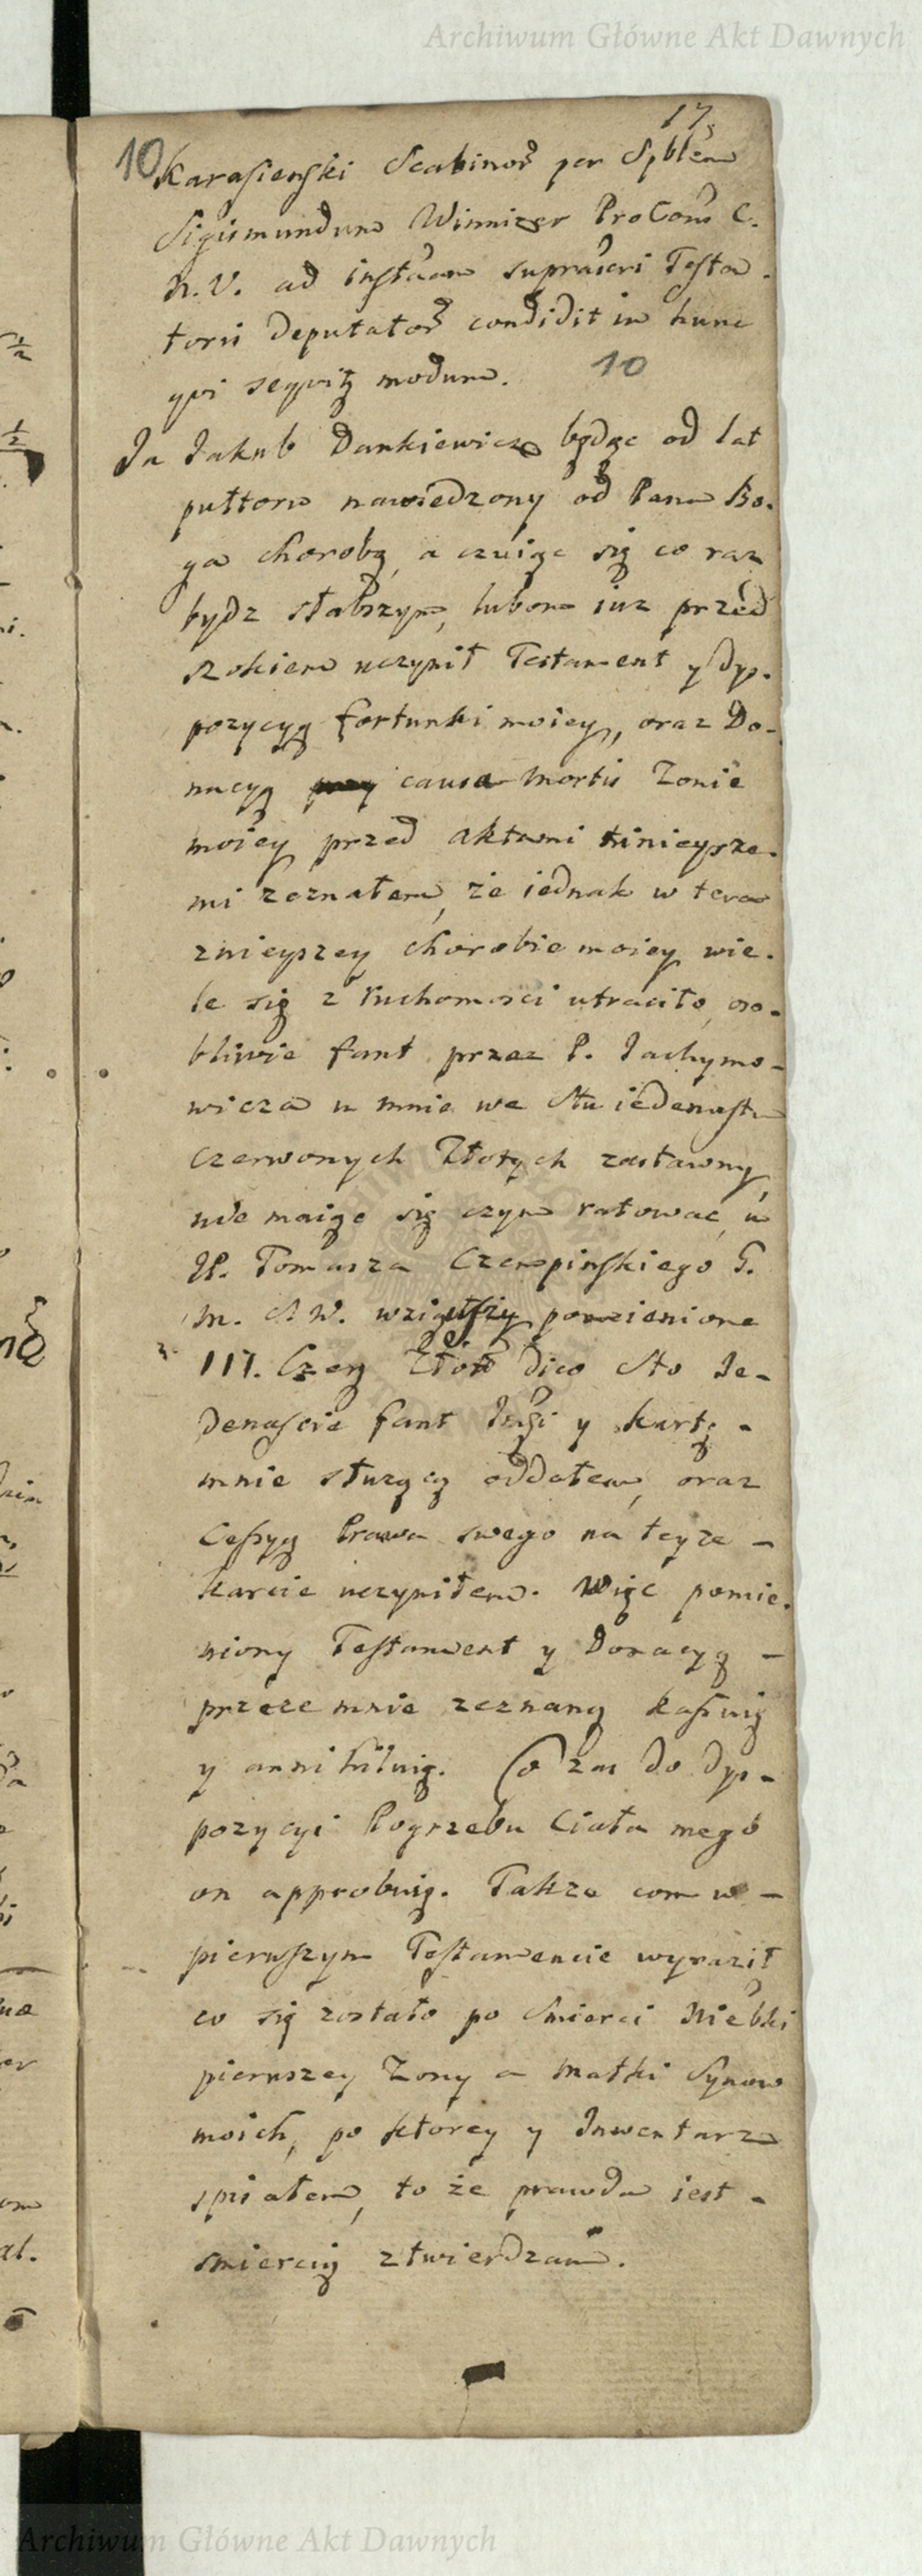 Archiwum Główne Akt Dawnych
17.
10
Karasieński Scabinor per Spblem
Sigismundum Winnizer ProConš C.
N. V. ad instãam suprascri Testa-
toris deputator condidit in hunc
qvi seqvitz modum. 10
Ja Jakub Dankiewicz będąc od lat
pułtora nawiedzony od Pana Bo-
ga chorobą, a czuiąc się co raz
bydz słabszym, lubom iuz przed
rokiem uczynił Testament y dys-
pozycyą fortunki moiey, oraz Do-
nacyą causa Mortis Zonie
moiey przed aktami ninieysze-
mi zeznałem, że iednak w tera
znieyszey chorobie moiey wie-
le się z ruchomosci utraciło, oso-
bliwie fant przez P. Jachymo-
wicza u mnie we Stu iedenastu
Czerwonych Złotych zastawny,
nie maiąc się czym ratować, u
JP. Tomasza Czempińskiego G.
M. S. W. wziąwszy pomienione
111. Czer Złot dico Sto Je-
denaście fant Jmści y kartę -
mnie służącą oddałem, oraz
Cessyą Prawa swego na teyże -
karcie uczyniłem. Więc pomie-
niony Testament y Donacyą -
przeze mnie zeznaną kassuię
y annihiluię. Co zas do dys-
pozycyi Pogrzebu Ciała mego
on approbuię. Takze com w -
pierwszym Testamencie wyraził
co się zostało po śmierci Niebki
pierwszey Zony a Matki Synow
moich, po ktorey y Inwentarz
spisałem, to że prawda iest -
smiercią ztwierdzam.
Archiwum Główne Akt Dawnych